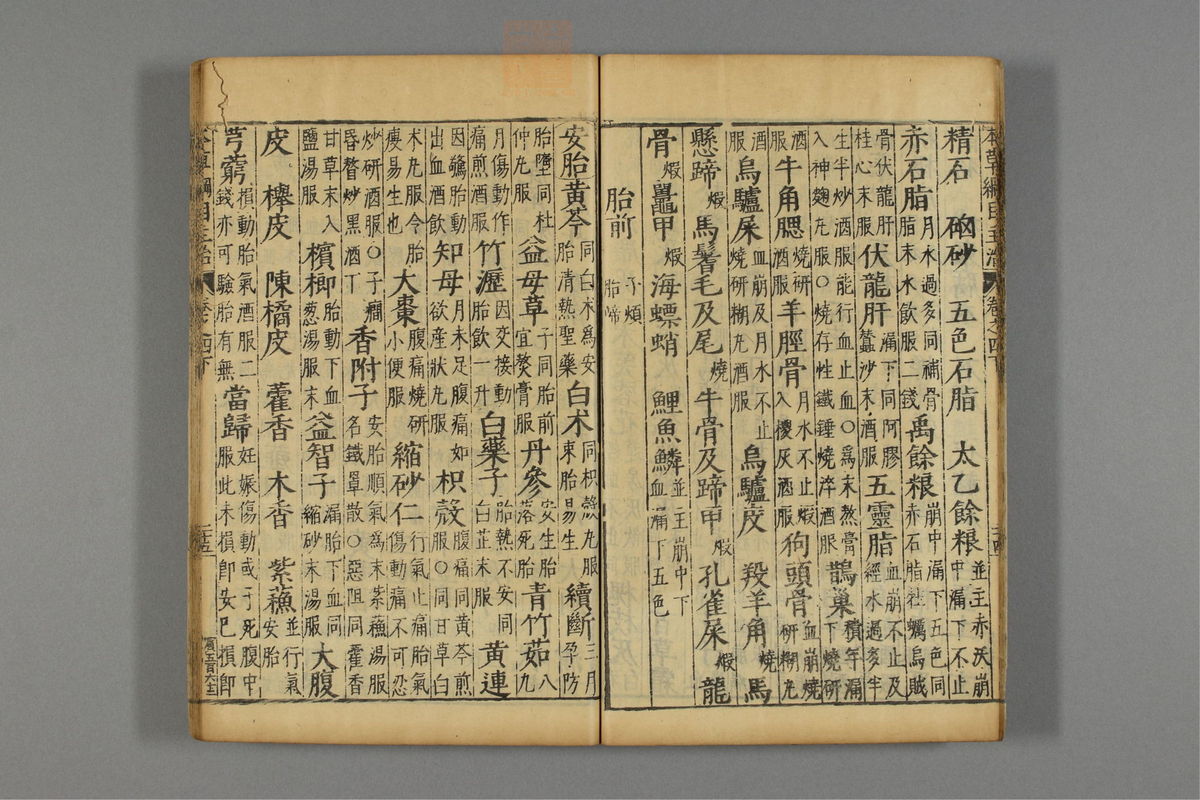 本草綱目主治　卷之四下
精石　硇砂　五色石脂　太乙餘粮並主赤沃崩中漏下不止
赤石脂月水過多同補骨脂末水飲服二錢禹餘粮崩中漏下五色同赤石脂牡蠣烏賊
骨伏龍肝桂心末服伏龍肝漏下同阿膠蠶沙末酒服五靈脂血崩不止及經水過多半
生半炒酒服能行血止血○爲末熬膏入神麴丸服○燒存性鐵錘燒淬酒服鵲巢積年漏下燒研
酒服牛角䚡燒研酒服羊脛骨月水不止煅入椶灰酒服狗頭骨血崩燒研糊丸
酒服烏驢屎血崩及月水不止燒研糊丸酒服烏驢皮　羖羊角燒馬
懸蹄煅馬鬐毛及尾燒牛骨及蹄甲煅孔雀屎煅龍
骨煅鼉甲煅海螵蛸　鯉魚鱗並主崩中下血漏下五色
胎前子煩胎啼
安胎黃芩同白术爲安胎清熱聖藥白术同枳殼丸服束胎易生續斷三月孕防
胎墮同杜仲丸服益母草子同胎前宜熬膏服丹參安生胎落死胎青竹茹八九
月傷動作痛煎酒服竹瀝因交接動胎飲一升白藥子胎熱不安同白芷末服黃連
因驚胎動出血酒飲知母月未足腹痛如欲産狀丸服枳殼腹痛同黃芩煎服○同甘草白
术丸服令胎瘦易生也大棗腹痛燒研小便服縮砂仁行氣止痛胎氣傷動痛不可忍
炒研酒服○子癎昏瞀炒黑酒丁香附子安胎順氣爲末紫蘓湯服名鐵罩散○惡阻同藿香
甘草末入鹽湯服檳榔胎動下血葱湯服末益智子漏胎下血同縮砂末湯服大腹
皮　櫸皮　陳橘皮　藿香　木香　紫蘓並行氣安胎
芎藭損動胎氣酒服二錢亦可驗胎有無當歸妊娠傷動或子死腹中服此未損卽安已損卽
本草綱目主治　卷之四下